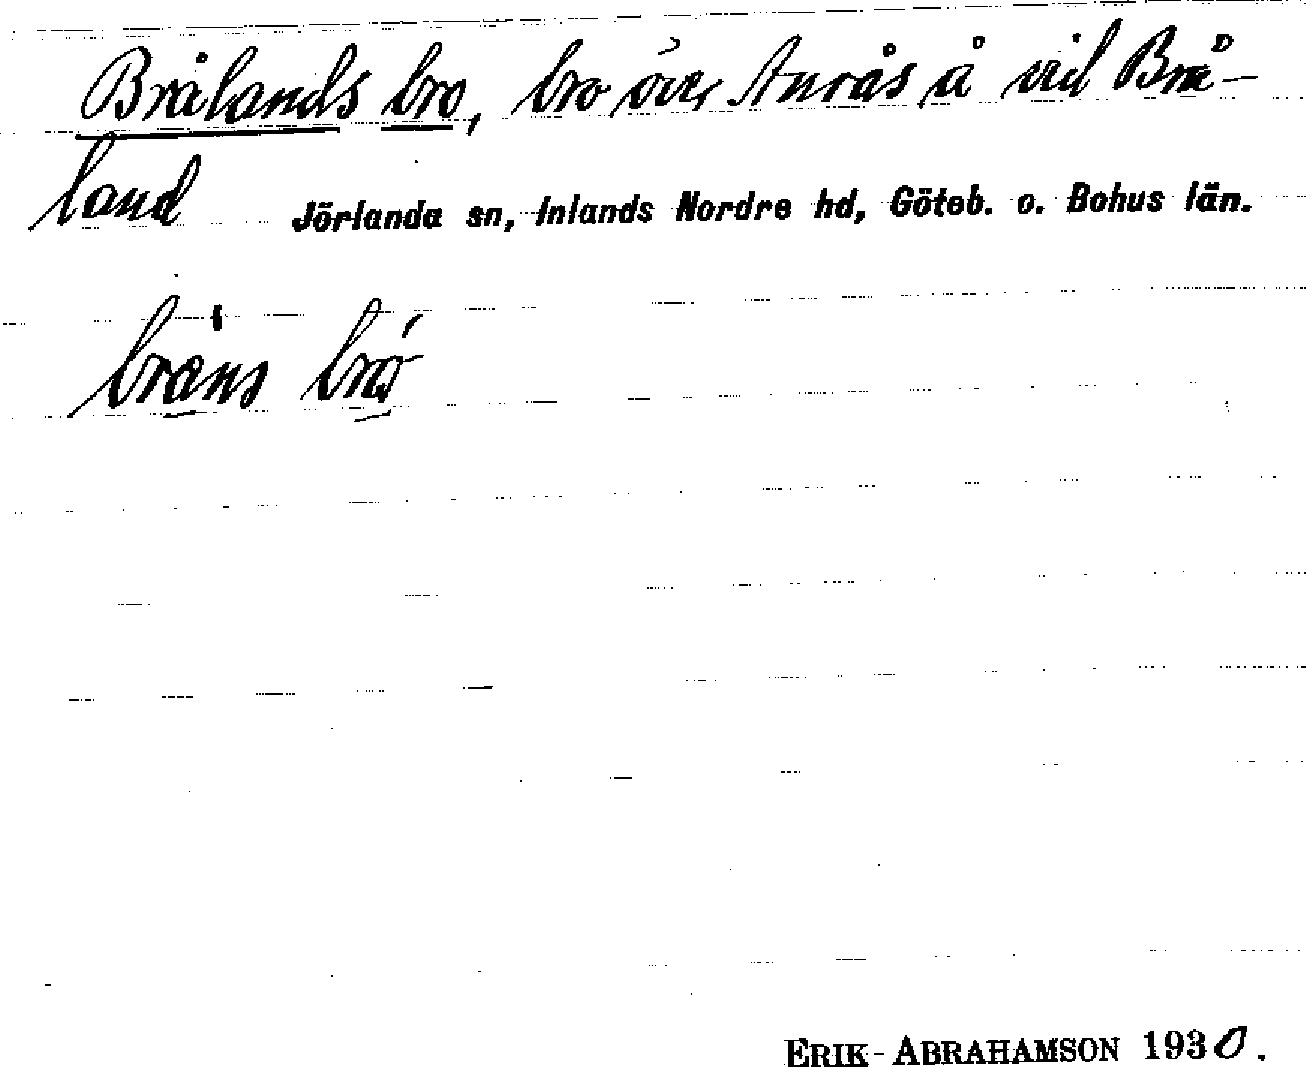 Brålands bro, bro över Anrås å vid Brå-
land Jörlanda sn, Inlands Nordre hd, Göteb. o. Bohus län.
ERIK ABRAHAMSON 1930.